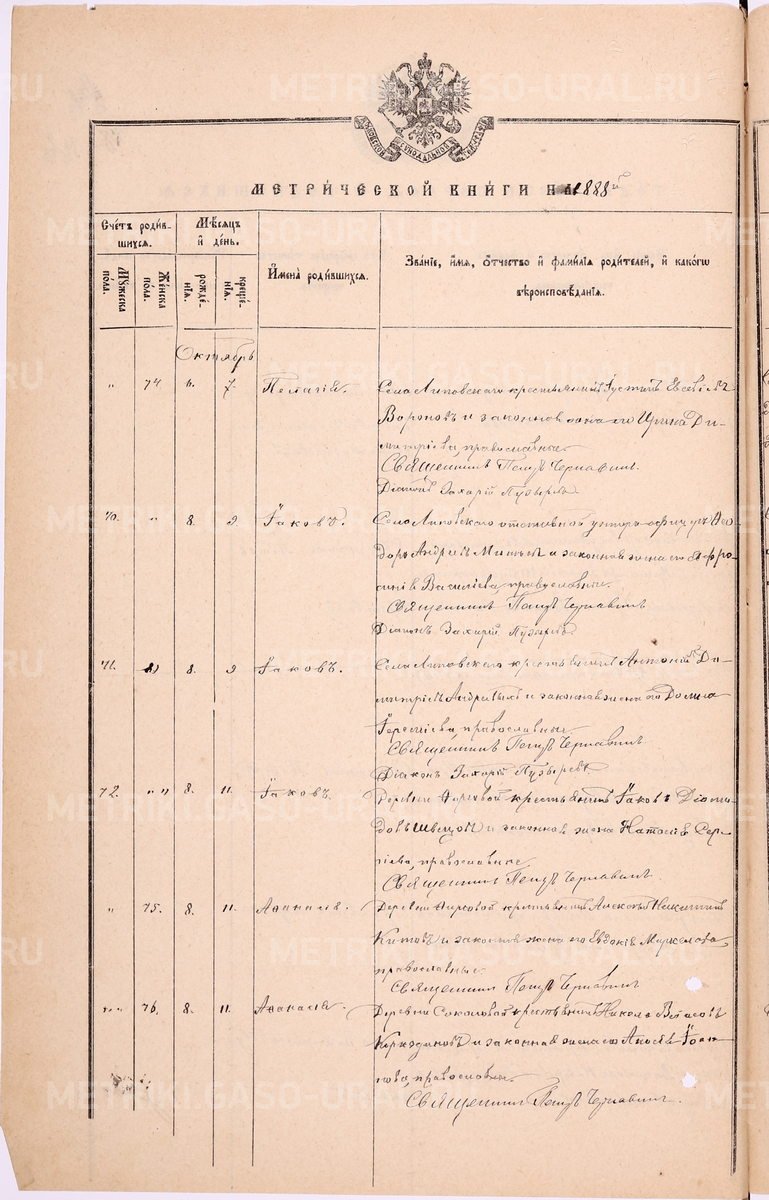 METRIKI.GASO-URAL.RU
МЕТРИ́ЧЕСКОЙ КНИ́ГИ НА 1888й
Сче́тъ роди́в-
шихся.
Мѣ́сяцъ
и҆ де́нь.
И҆мена̀ роди́вшихся.
Зва́нїе, и҆́мя, ѻ҆́тчество и҆ фами́лїя роди́телей, и҆ како́гѡ
вѣроисповѣ́данїя.
Мꙋ́жеска
по́ла.
Же́нска
по́ла.
рожде́-
нїя.
креще́-
нїя.
Октябрь
" 74 6. 7. Пелагія. Села Липовскаго крестьянинъ Іустинъ Евсевіевъ
Вороновъ и законная жена его Ирина Ди-
митріева, православные.
Священникъ Петръ Чернавинъ.
Діаконъ Захарій Пузыревъ
70. " 8. 9 Іаковъ. Села Липовскаго отставной унтеръ-офицеръ Ѳео-
доръ Андреевъ и законная жена его Евфро-
синія Василіева, православные.
Священникъ Петръ Чернавинъ
Діаконъ Захарій Пузыревъ
71. " 8. 9 Іаковъ. Села Липовскаго крестьянинъ Антоній Ди-
митріевъ и законная жена его Домна
православные.
Священникъ Петръ Чернавинъ.
Діаконъ Захарій Пузыревъ.
72. " " 8. 11. Іаковъ. Деревни Фирсовой крестьянинъ Іаковъ Діоми-
довъ Швецовъ и законная жена Наталія Сер-
гіева, православные.
Священникъ Петръ Чернавинъ.
" 75. 8. 11. Аѳанасія. Деревни Фирсовой крестьянинъ Алексѣй Никитинъ
Китовъ и законная жена его Евдокія Маркелова,
православные
Священникъ Петръ Чернавинъ
" " 76. 8. 11. Аѳанасія. Деревни Соколовой крестьянинъ Николай
и законная жена его Іоан-
нова, православные.
Священникъ Петръ Чернавинъ.